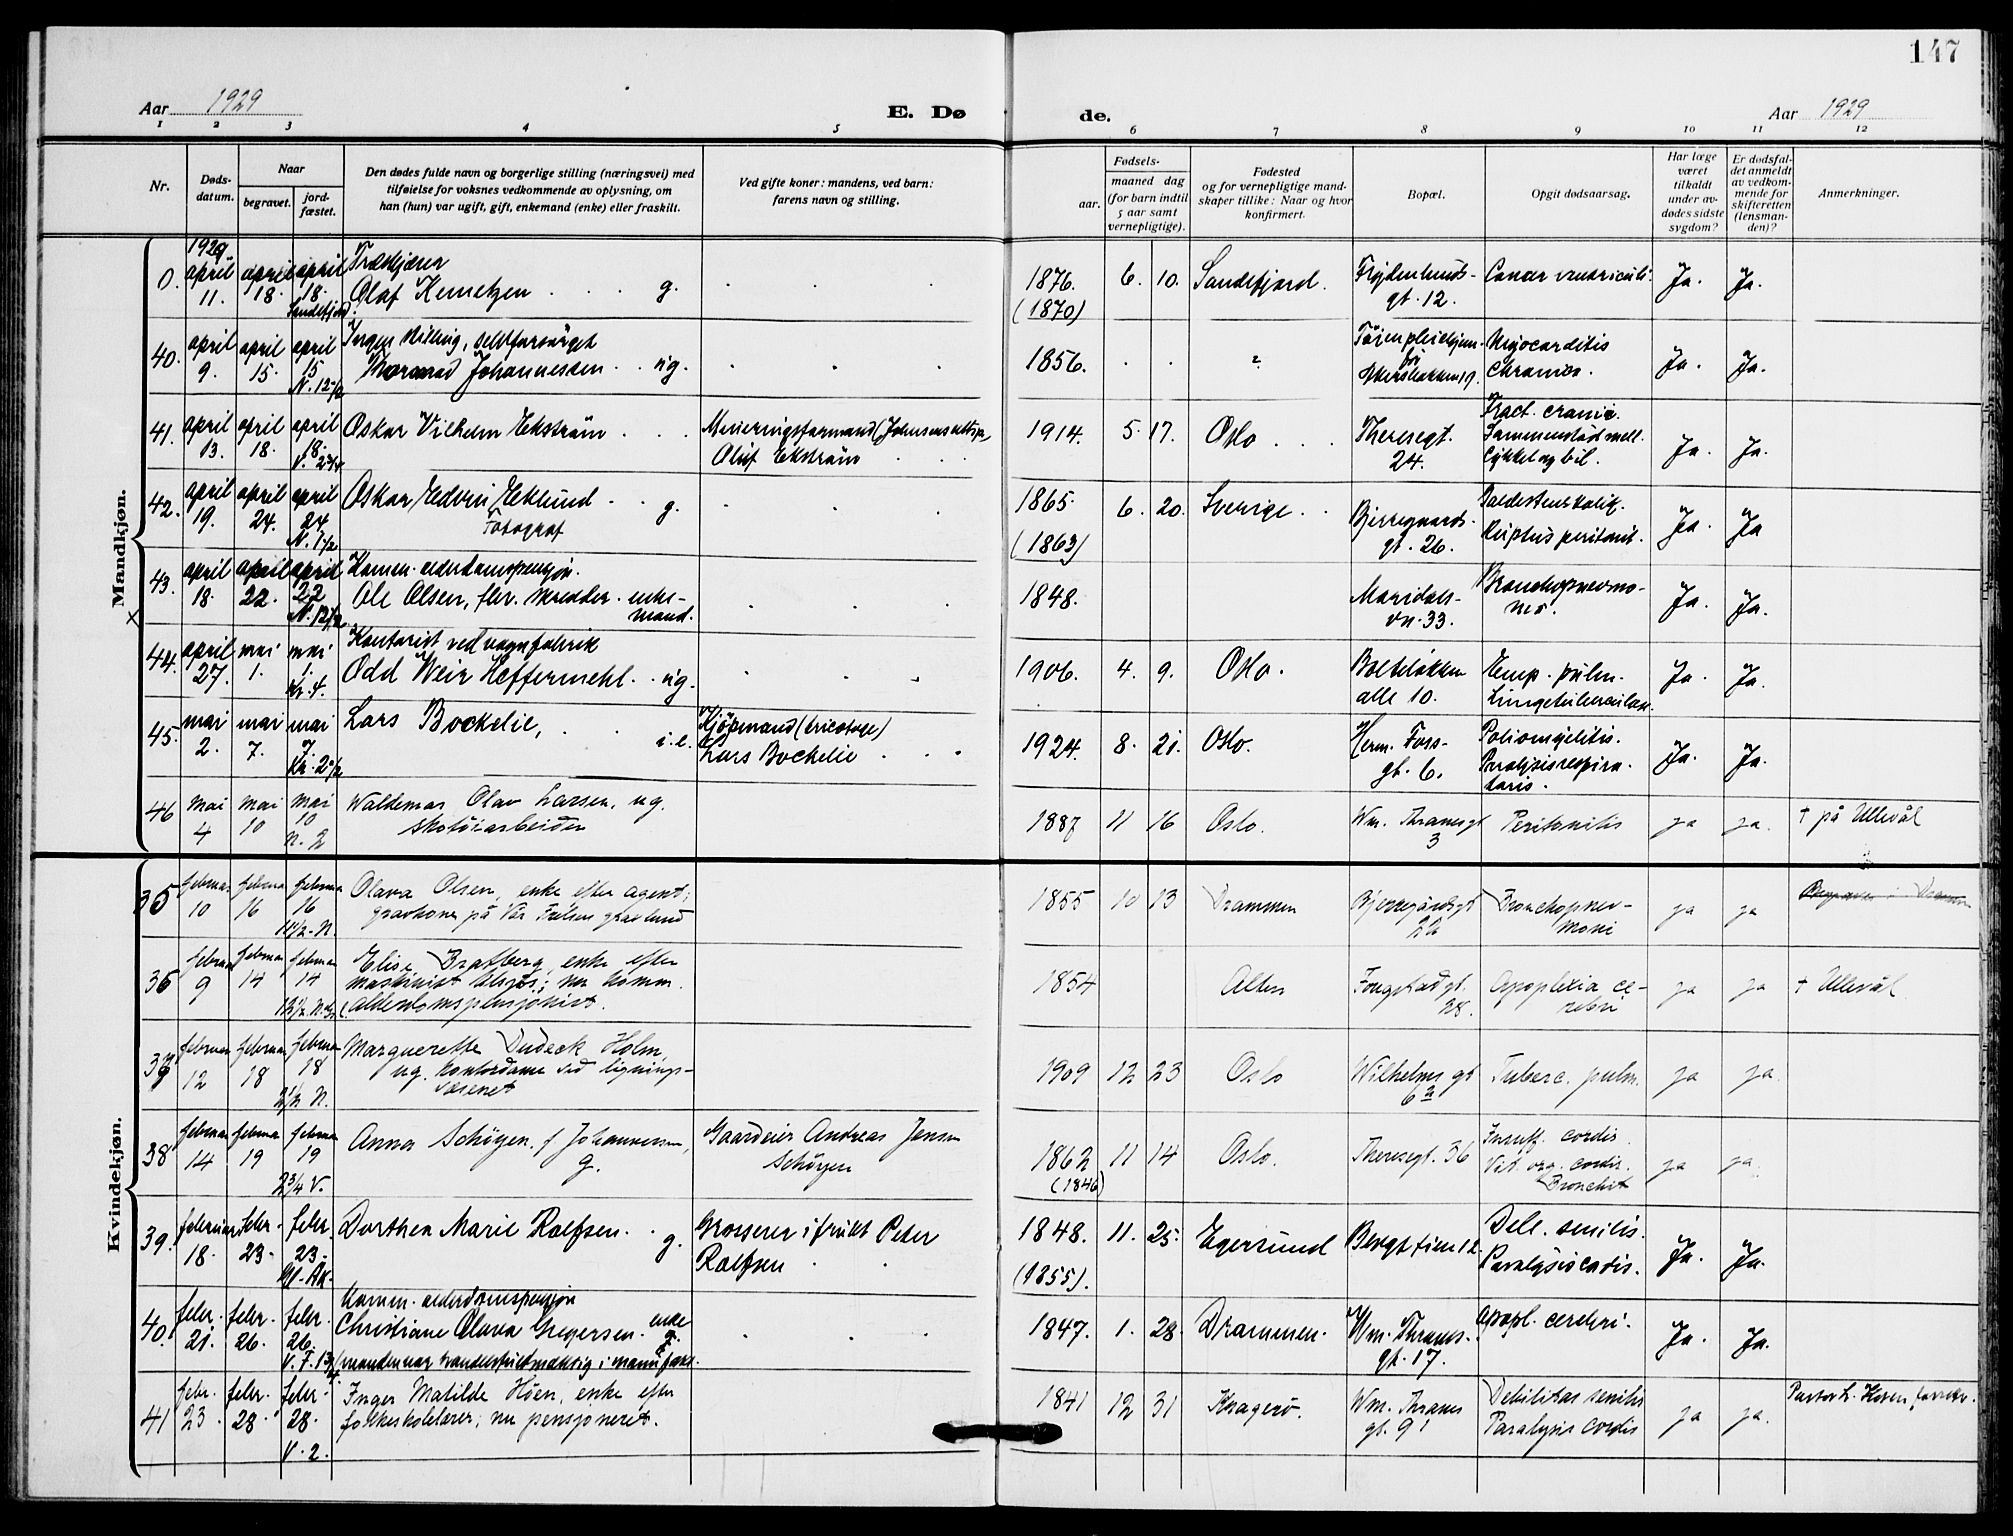 147
Aar 1929
E. Dø
de.
Aar 1929
1 2 3 4 5 6 7 8 9 10 11 12
Nr.
Døds-
datum.
Naar
begravet.
jord-
fæstet.
Den dødes fulde navn og borgerlige stilling (næringsvei) med
tilføielse for voksnes vedkommende av oplysning, om
han (hun) var ugift, gift, enkemand (enke) eller fraskilt.
Ved gifte koner: mandens, ved barn:
farens navn og stilling.
Fødsels-
aar.
maaned dag
(for barn indtil
5 aar samt
vernepligtige).
Fødested
og for vernepligtige mand-
skaper tillike: Naar og hvor
konfirmert.
Bopæl.
Opgit dødsaarsag.
Har læge
været
tilkaldt
under av-
dødes sidste
sygdom?
Er dødsfal-
det anmeldt
av vedkom-
mende for
skifteretten
(lensman-
den)?
Anmerkninger.
Mandkjøn.
0. 1929 april 11. april 18. april 18. Sandefjord
Olaf g. 1876. (1870) 6. 10. Sandefjord. gt. 12. Cancer ventriculi. Ja. Ja.
40. april 9. april 15. april 15 N. 12½
Ingen stilling, selvforsørget
Johannessen ug. 1856. Myocarditis chronica. Ja. Ja.
41. april 13. april 18. april 18.
Oskar Vilhelm Ekström
Oluf Ekström
1914. 5. 17. Oslo Theresegt. 24. Fract. cranii.
Sammenstöd mell.
cykkel og bil. Ja. Ja.
42. april 19. april 24. april 24 N. 1½
Oskar Edvin Eklund g.
Fotograf
1865. (1863) 6. 20. Sverige Bjerregaards-
gt. 26. Galdestenskolik.
Ruptus peritonit. Ja. Ja
43. april 18. april 22. april 22 N. 12½
Komm. alderdomspensjon.
Ole Olsen, fhv. skredder. enke-
mand.
1848. Maridals-
vn. 33. Bronchopnevmo-
ni. Ja. Ja.
44. april 27. mai 1. mai 1. Kr. 4.
Kontorist ved vognfabrik
Odd Weir Heffermehl. ug.
1906. 4. 9. Oslo. Bolteløkken
alle 10. Lungetuberculose. Ja. Ja.
45. mai 2. mai 7. mai 7. Kr. 2½
Lars Bockelie, i.e.
Kjöpmand (tricotage)
Lars Bockelie
1924. 8. 21. Oslo. Herm. Foss-
gt. 6. Poliomyelitis.
Paralysis respira-
toris. Ja. Ja.
46 mai 4 mai 10 mai 10 n. 2
Waldemar Olav Larsen, ug.
skotøiarbeider
1887 11 16 Oslo. Wm. Thranesgt
3 Peritonitis ja ja. † på Ullevål
Kvindekjøn.
35 februar 10 februar 16 februar 16 11½ N.
Olava Olsen, enke efter agent;
gravkone på Vår Frelsers gravlund
1855 10 13 Drammen Bjerregårdsgt Bronchopnev-
moni ja ja
36 februar 9 februar 14 februar 14
Elise Bratberg, enke efter
maskinist nu komm.
alderdomspensjonist.
1854 Alten Fougstadgt.
28. Apoplexia ce-
rebri ja ja † Ullevål
37 februar 12 februar 18 februar 18 2½ N.
Marguerette Dudeck Holm,
ug. kontordame ved lignings-
vesenet
1909 12 23 Oslo Wilhelms gt
6 Tuberc. pulm. ja ja.
38 februar 14 februar 19 februar 19 2¾ V.
Anna Schøyen, f Johannessen,
g.
Gaardeier Andreas Jensen
Schøyen
1862 (1846) 11 14 Oslo. Theresegt. 36 Insuff. cordis.
Vit. org. cordis.
Bronchit ja ja.
39. februar 18. febr. 23. febr. 23.
Dorthea Marie Rolfsen. g.
Grosserer i frukt Peter
Rolfsen
1848. (1855). 11. 25. Egersund Bergstien 12. Deb. senilis.
Paralysis cordis. Ja. Ja.
40. febr. 21. febr. 26. febr. 26.
Komm. alderdomspensjon
Christiane Olava Gregersen. enke
1847. 1. 28. Drammen. Wm. Thranes-
gt. 17. Apopl. cerebri. Ja. Ja.
41 febr. 23. febr. 28. febr. 28. V. 2.
Inger Matilde Höen, enke efter
folkeskolelærer; nu pensjoneret.
1841 12 31 Kragerö. Wm. Thranes
gt. 9 Debilitas senilis
Paralysis cordis ja ja.